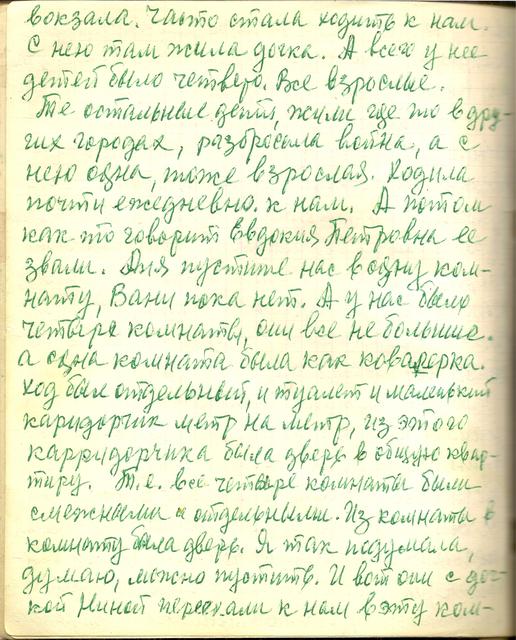 вокзала. Часто стала ходить к нам.
С нею там жила дочка. А всего у нее
детей было четверо. Все взрослые.
Те остальные дети, жили где то в дру-
гих городах, разбросала война, а с
нею одна, тоже взрослая. Ходила
почти ежедневно к нам. А потом
как то говорит Евдокия Петровна ее
звали. Аня пустите нас в одну ком-
нату, Вани пока нет. А у нас было
четыре комнаты, они все не большие.
а одна комната была как коварерка.
Ход был отдельный, и туалет и маленький
каридорчик метр на метр, из этого
карридорчика была дверь в общую квар-
тиру. Т.е. все четыре комнаты были
смежными и отдельными. Из комнаты в
комнату была дверь. Я так подумала,
думаю, можно пустить. И вот они с доч-
кой Ниной переехали к нам в эту ком-